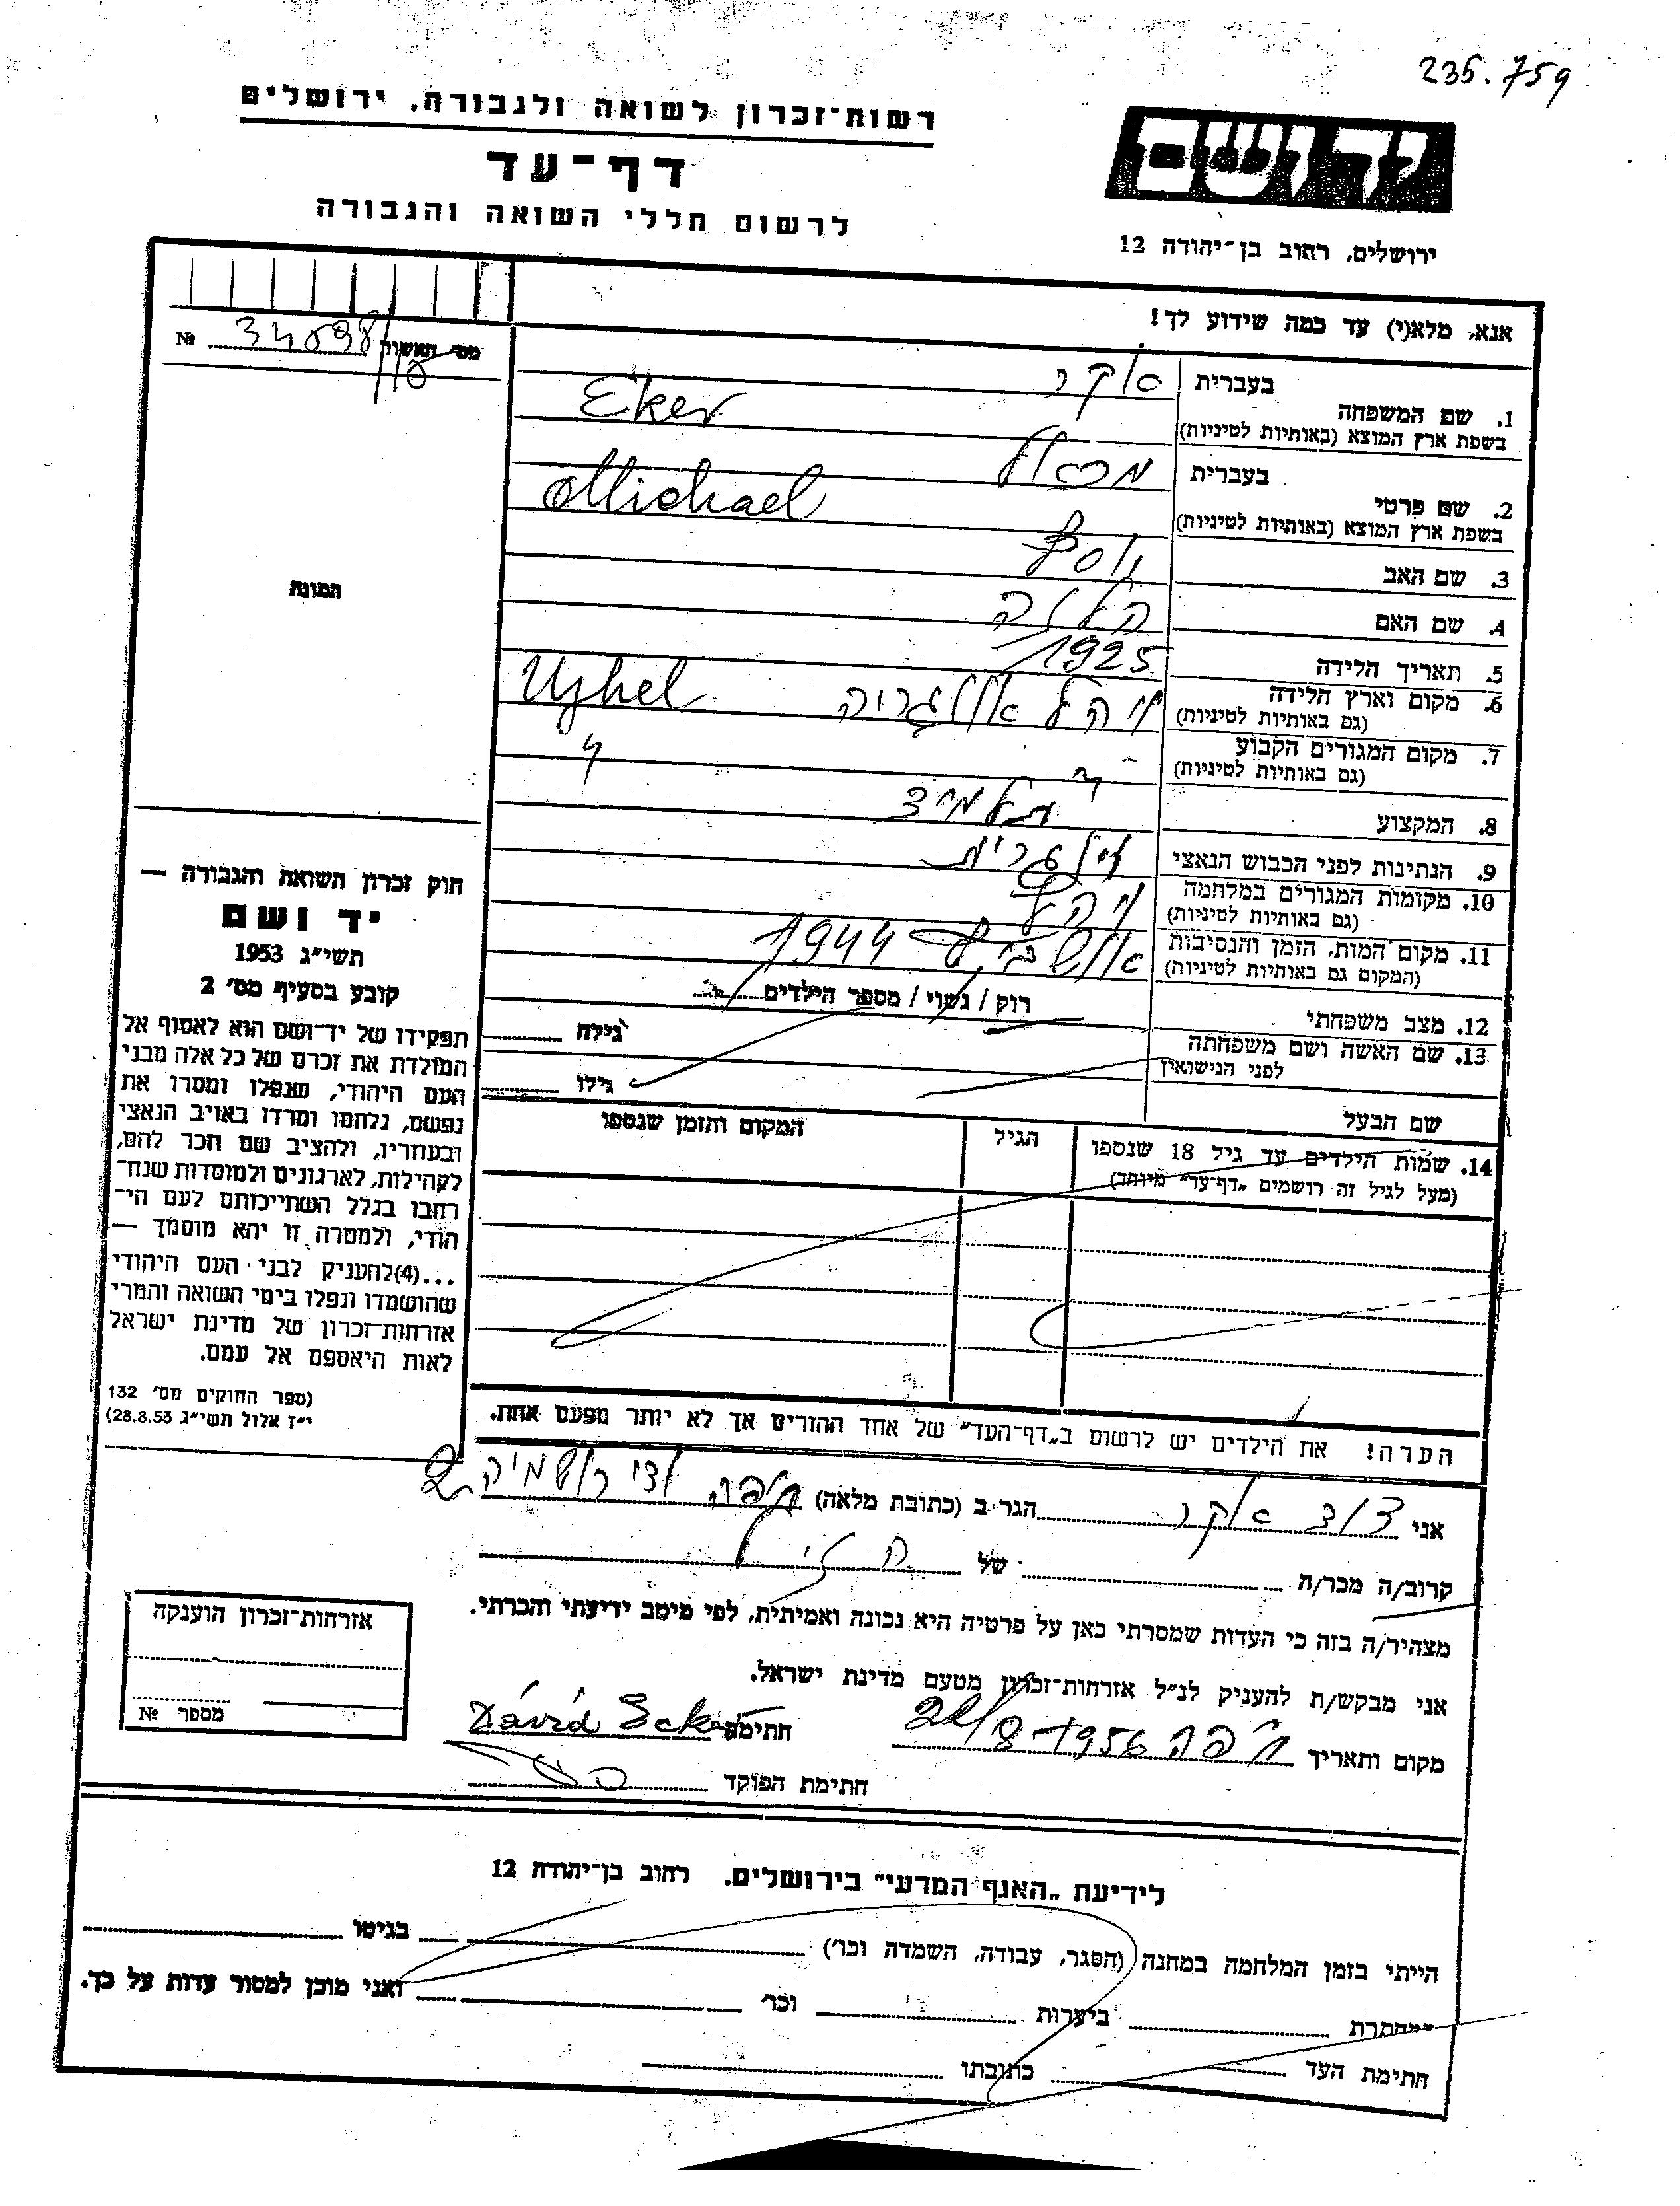 235.759
רשות־זכרון לשואה ולגבורה, ירושלים
דף־עד
לרשום חללי השואה והגבורה
יד ושם
ירושלים, רחוב בן־יהודה 12
אנא, מלא(י) עד כמה שידוע לך!
מס׳ האשור 34098/18 №
התמונה
בעברית אקר
1. שם המשפחה
בשפת ארץ המוצא (באותיות לטיניות) Eker
בעברית מכאל
2. שם פרטי
בשפת ארץ המוצא (באותיות לטיניות) Michael
3. שם האב יוסף
4. שם האם
5. תאריך הלידה 1925
6. מקום וארץ הלידה
(גם באותיות לטיניות) Ujhel
7. מקום המגורים הקבוע
(גם באותיות לטיניות)
8. המקצוע תלמיד
9. הנתינות לפני הכבוש הנאצי
10. מקומות המגורים במלחמה
(גם באותיות לטיניות)
11. מקום המות, הזמן והנסיבות 1944
(המקום גם באותיות לטיניות)
12. מצב משפחתי רוק / נשוי / מספר הילדים
13. שם האשה ושם משפחתה גילה
לפני הנישואין
שם הבעל גילו
14. שמות הילדים עד גיל 18 שנספו הגיל המקום והזמן שנספו
(מעל לגיל זה רושמים „דף־עד״ מיוחד)
הערה! את הילדים יש לרשום ב„דף־העד״ של אחד ההורים אך לא יותר מפעם אחת.
חוק זכרון השואה והגבורה —
יד ושם
תשי״ג 1953
קובע בסעיף מס׳ 2
תפקידו של יד־ושם הוא לאסוף אל
המולדת את זכרם של כל אלה מבני
העם היהודי, שנפלו ומסרו את
נפשם, נלחמו ומרדו באויב הנאצי
ובעוזריו, ולהציב שם וזכר להם,
לקהילות, לארגונים ולמוסדות שנח־
רבו בגלל השתייכותם לעם הי־
הודי, ולמטרה זו יהא מוסמך —
...(4)להעניק לבני העם היהודי
שהושמדו ונפלו בימי השואה והמרי
אזרחות־זכרון של מדינת ישראל
לאות היאספם אל עמם.
(ספר החוקים מס׳ 132
י״ז אלול תשי״ג 28.8.53)
אני דוד אקר הגר ב (כתובת מלאה) חיפה ואדי רושמיה 2
קרוב/ה מכר/ה של הנ״ל
מצהיר/ה בזה כי העדות שמסרתי כאן על פרטיה היא נכונה ואמיתית, לפי מיטב ידיעתי והכרתי.
אני מבקש/ת להעניק לנ״ל אזרחות־זכרון מטעם מדינת ישראל.
מקום ותאריך חיפה 22/8 1956 חתימה Dávid Ecker
חתימת הפוקד
אזרחות־זכרון הוענקה
מספר №
לידיעת „האגף המדעי״ בירושלים. רחוב בן־יהודה 12
הייתי בזמן המלחמה במחנה (הסגר, עבודה, השמדה וכו׳) בגיטו
במחתרת ביערות וכו׳ ואני מוכן למסור עדות על כך.
חתימת העד כתובתו